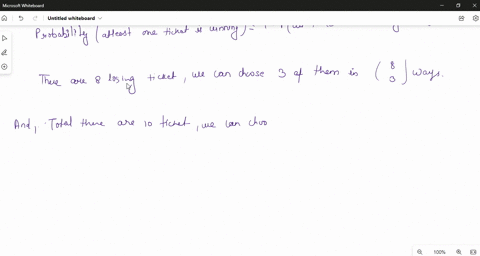 Microsoft Whiteboard
Untitled whiteboard
Probability (atleast one ticket is winning) =
There are 8 losing ticket, we can choose 3 of them in (8 3) ways.
And, Total there are 10 ticket, we can choo
100%